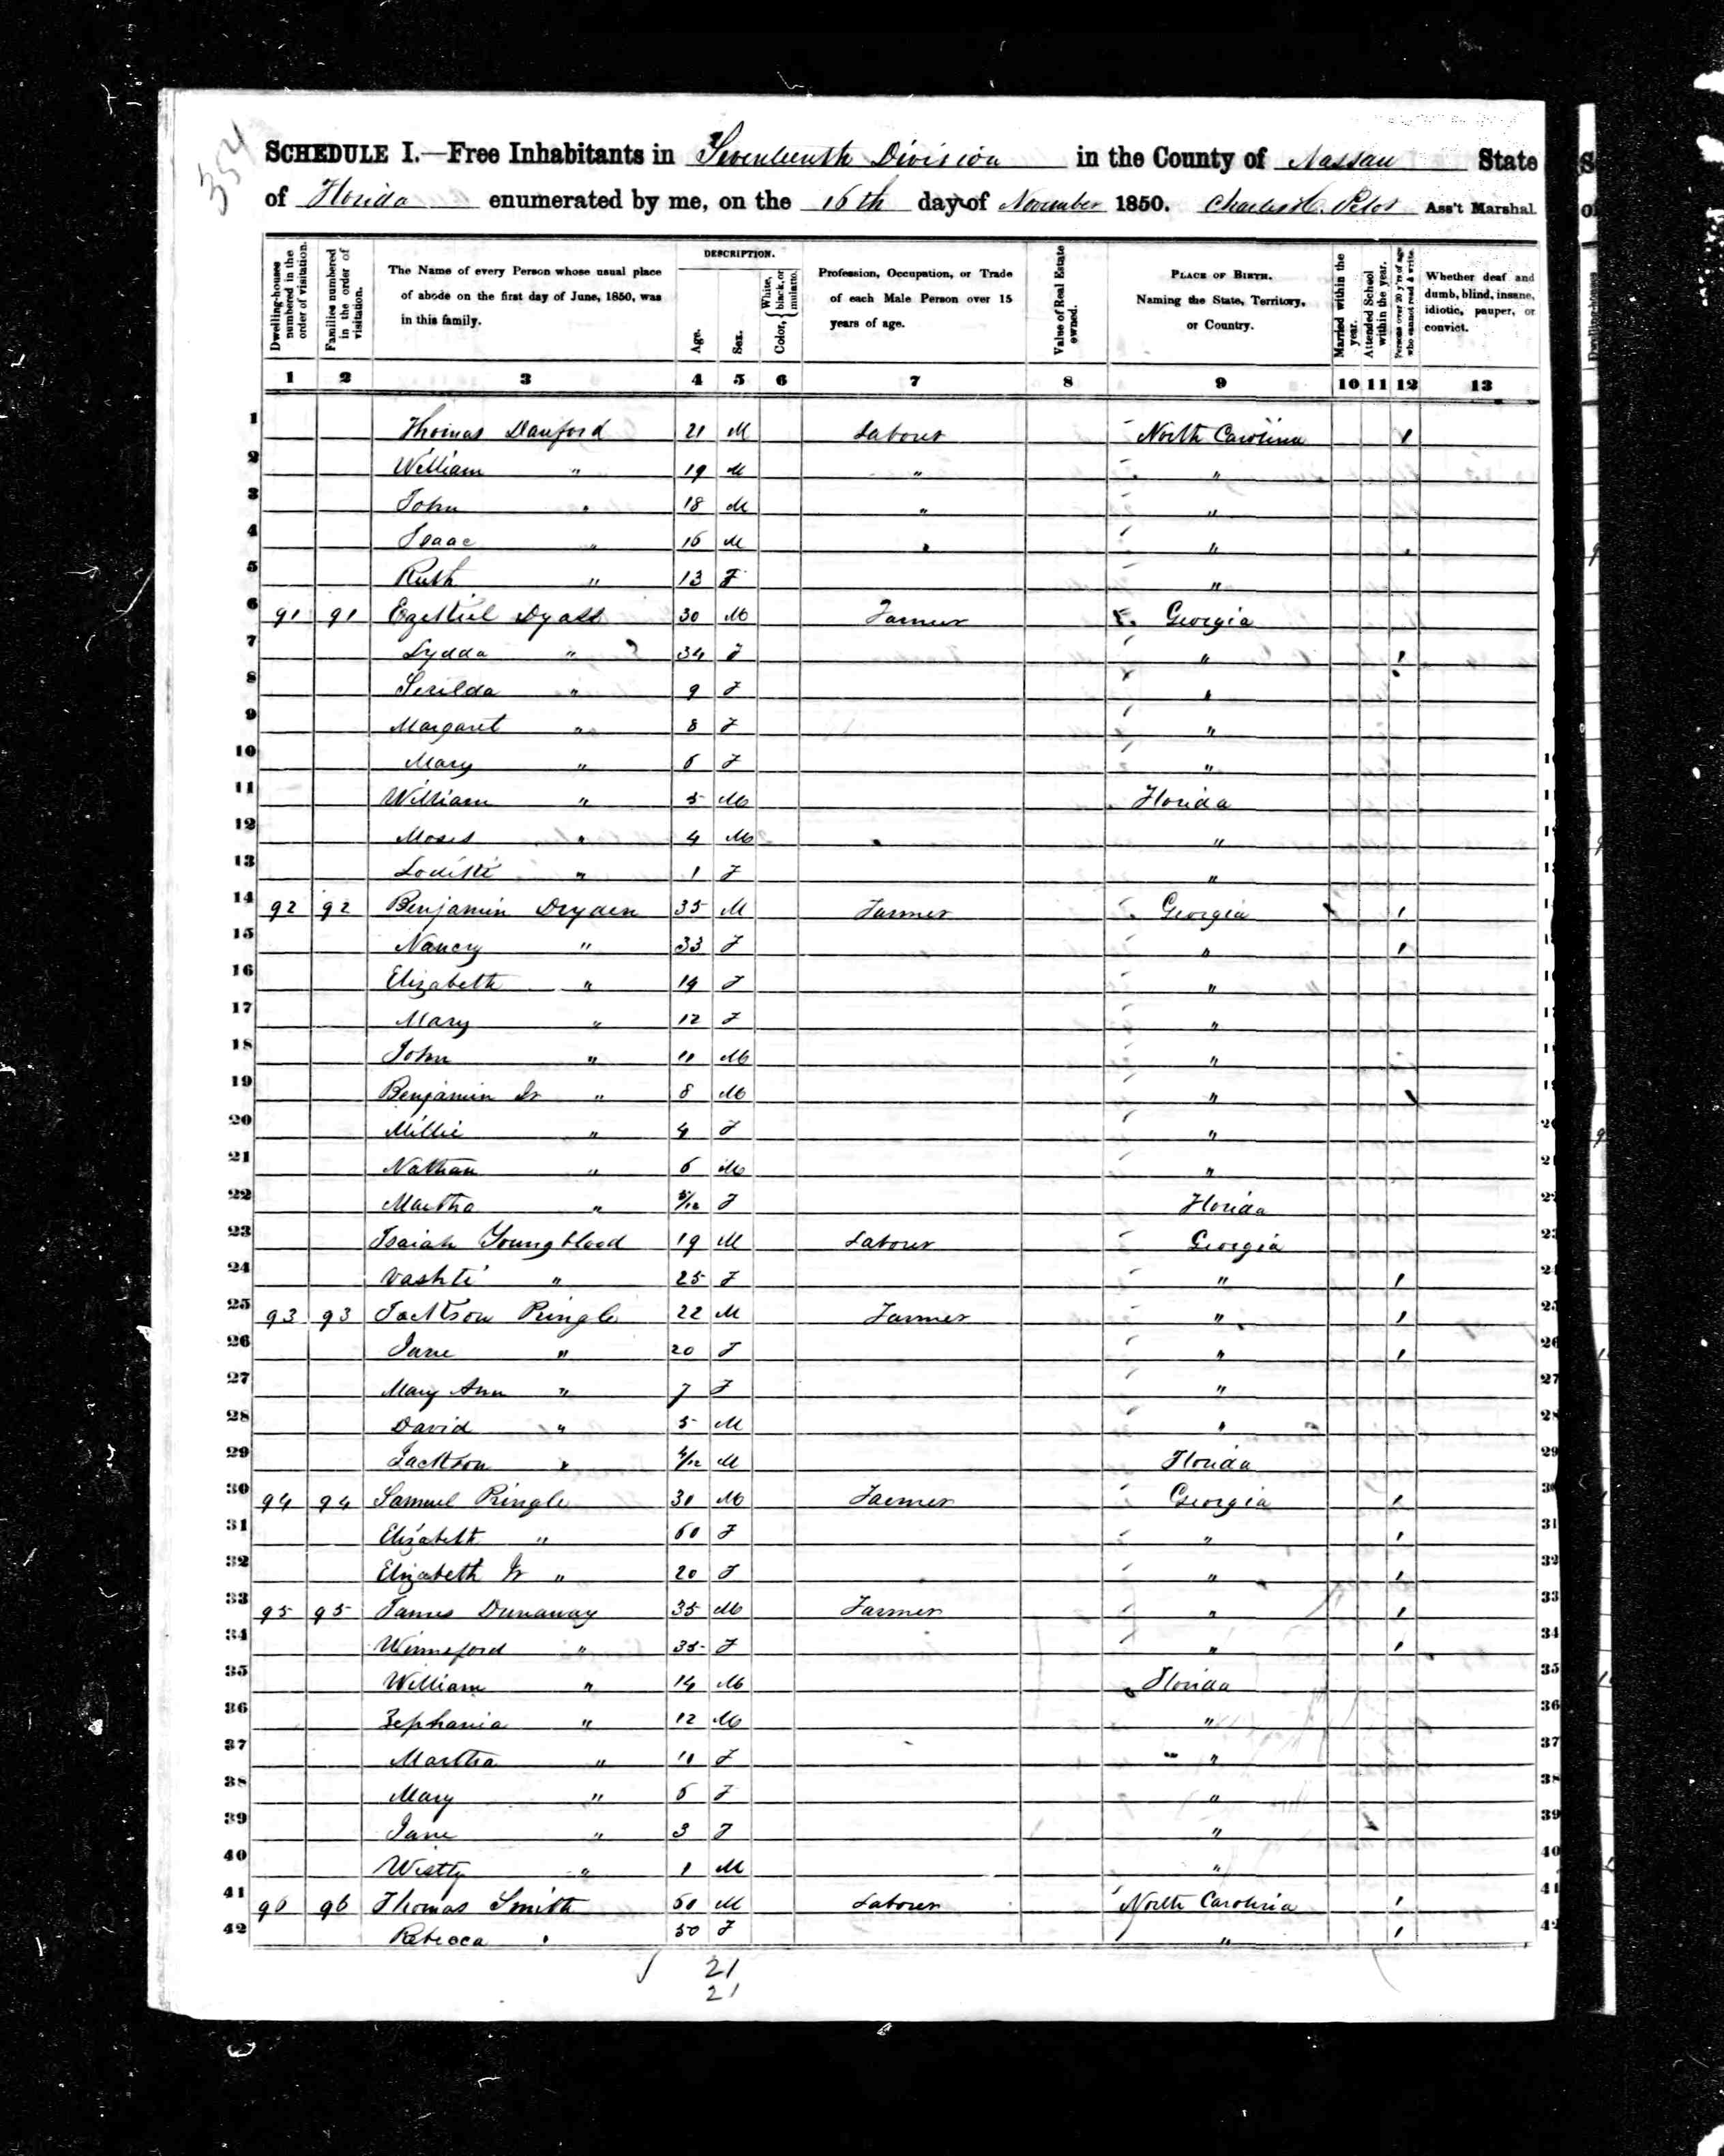 354
SCHEDULE I.—Free Inhabitants in Seventeenth Division in the County of Nassau State
of Florida enumerated by me, on the 16th day of November 1850. Charles H. Pelot Ass't Marshal
Dwelling-houses numbered in the order of visitation. Families numbered in the order of visitation. The Name of every Person whose usual place of abode on the first day of June, 1850, was in this family. DESCRIPTION. Age. Sex. Color, { White, black, or mulatto. Profession, Occupation, or Trade of each Male Person over 15 years of age. Value of Real Estate owned. PLACE OF BIRTH. Naming the State, Territory, or Country. Married within the year. Attended School within the year. Persons over 20 y'rs of age who cannot read & write. Whether deaf and dumb, blind, insane, idiotic, pauper, or convict.
1 2 3 4 5 6 7 8 9 10 11 12 13
1 Thomas Danford 21 M Labourer North Carolina 1
2 William " 19 M " "
3 John " 18 M " "
4 Isaac " 16 M " "
5 Ruth " 13 F "
6 91 91 Ezekiel Dyass 30 M Farmer Georgia
7 Lydda " 34 F " 1
8 Serilda " 9 F "
9 Margaret " 8 F "
10 Mary " 6 F "
11 William " 5 M Florida
12 Moses " 4 M "
13 " 1 F "
14 92 92 Benjamin Dryden 35 M Farmer Georgia 1
15 Nancy " 33 F " 1
16 Elizabeth " 14 F "
17 Mary " 12 F "
18 John " 11 M "
19 Benjamin Jr " 8 M "
20 Millie " 4 F "
21 Nathan " 6 M "
22 Martha " F Florida
23 Isaiah Youngblood 19 M Labourer Georgia
24 Vashti " 25 F " 1
25 93 93 Jackson Pringle 22 M Farmer " 1
26 Jane " 20 F " 1
27 Mary Ann " 7 F "
28 David " 5 M "
29 Jackson " 4/12 M Florida
30 94 94 Samuel Pringle 31 M Farmer Georgia 1
31 Elizabeth " 60 F " 1
32 Elizabeth Jr " 20 F " 1
33 95 95 James Dunaway 35 M Farmer " 1
34 Winneford " 35 F " 1
35 William " 14 M Florida
36 Zephania " 12 M "
37 Martha " 11 F "
38 Mary " 6 F "
39 Jane " 3 F "
40 Westly " 1 M "
41 96 96 Thomas Smith 61 M Labourer North Carolina 1
42 Rebecca " 50 F " 1
21
21